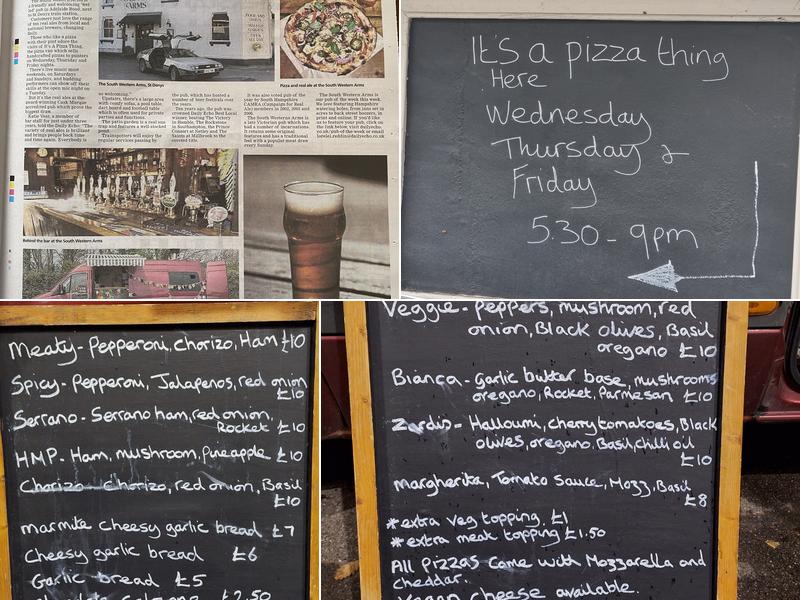 ARMS
a friendly and welcoming 'wet
led' pub in Adelaide Road, next
to St Denys train station.
Customers just love the range
of ten real ales from local and
national brewers, changing
daily.
Those who like a pizza
with their pint adore the
visits of It's A Pizza Thing,
the pizza van which sells
handcrafted pizzas to punters
on Wednesday, Thursday and
Friday evenings.
There's live music most
weekends, on Saturdays
and Sundays, and budding
performers can show off their
skills at the open mic night on
a Tuesday.
But it's the real ales at the
award-winning Cask Marque
accredited pub which prove the
biggest draw.
Katie Vear, a member of
bar staff for just under three
years, told the Daily Echo: "The
variety of real ales is brilliant
and brings people back time
and time again. Everybody is
The South Western Arms, St Denys
so welcoming."
Upstairs, there's a large area
with comfy sofas, a pool table,
dart board and football table
which is often used for private
parties and functions.
The patio garden is a sun
trap and features a well-stocked
pond.
Trainspotters will enjoy the
regular services passing by
the pub, which has hosted a
number of beer festivals over
the years.
Ten years ago, the pub was
named Daily Echo Best Local
winner, beating The Victory
in Hamble, The Rockstone
in Southampton, the Prince
Consort at Netley and The
Saints at Millbrook to the
coveted title.
Pizza and real ale at the South Western Arms
It was also voted pub of the
year by South Hampshire
CAMRA (Campaign for Real
Ale) members in 2002, 2003 and
The South Western Arms is
a late Victorian pub which has
had a number of incarnations.
It retains some original
features and has a traditional
feel with a popular meal draw
every Sunday.
The South Western Arms is
our pub of the week this week.
We love featuring Hampshire
watering holes, from
in print and online. If you'd like
us to feature your pub, click on
Behind the bar at the South Western Arms
It's a pizza thing
Here
Wednesday
Thursday &
Friday
5.30 - 9pm
Meaty - Pepperoni, chorizo, Ham £10
Spicy - Pepperoni, Jalapenos, red onion
£10
Serrano - Serrano ham, red onion,
Rocket £10
HMP - Ham, mushroom, Pineapple £10
Chorizo - Chorizo, red onion, Basil
£10
marmite cheesy garlic bread £7
Cheesy garlic bread £6
Garlic bread £5
£2.50
Veggie - Peppers, mushroom, red
onion, Black olives, Basil
oregano £10
Bianca - Garlic butter base, mushrooms
oregano, Rocket, Parmesan £10
Zardis - Halloumi, cherry tomatoes, Black
olives, oregano, Basil, chilli oil
£10
Margherita, Tomato sauce, Mozz, Basil
£8
* extra veg topping £1
* extra meat topping £1.50
All Pizzas come with Mozzarella and
cheddar.
Vegan cheese available.